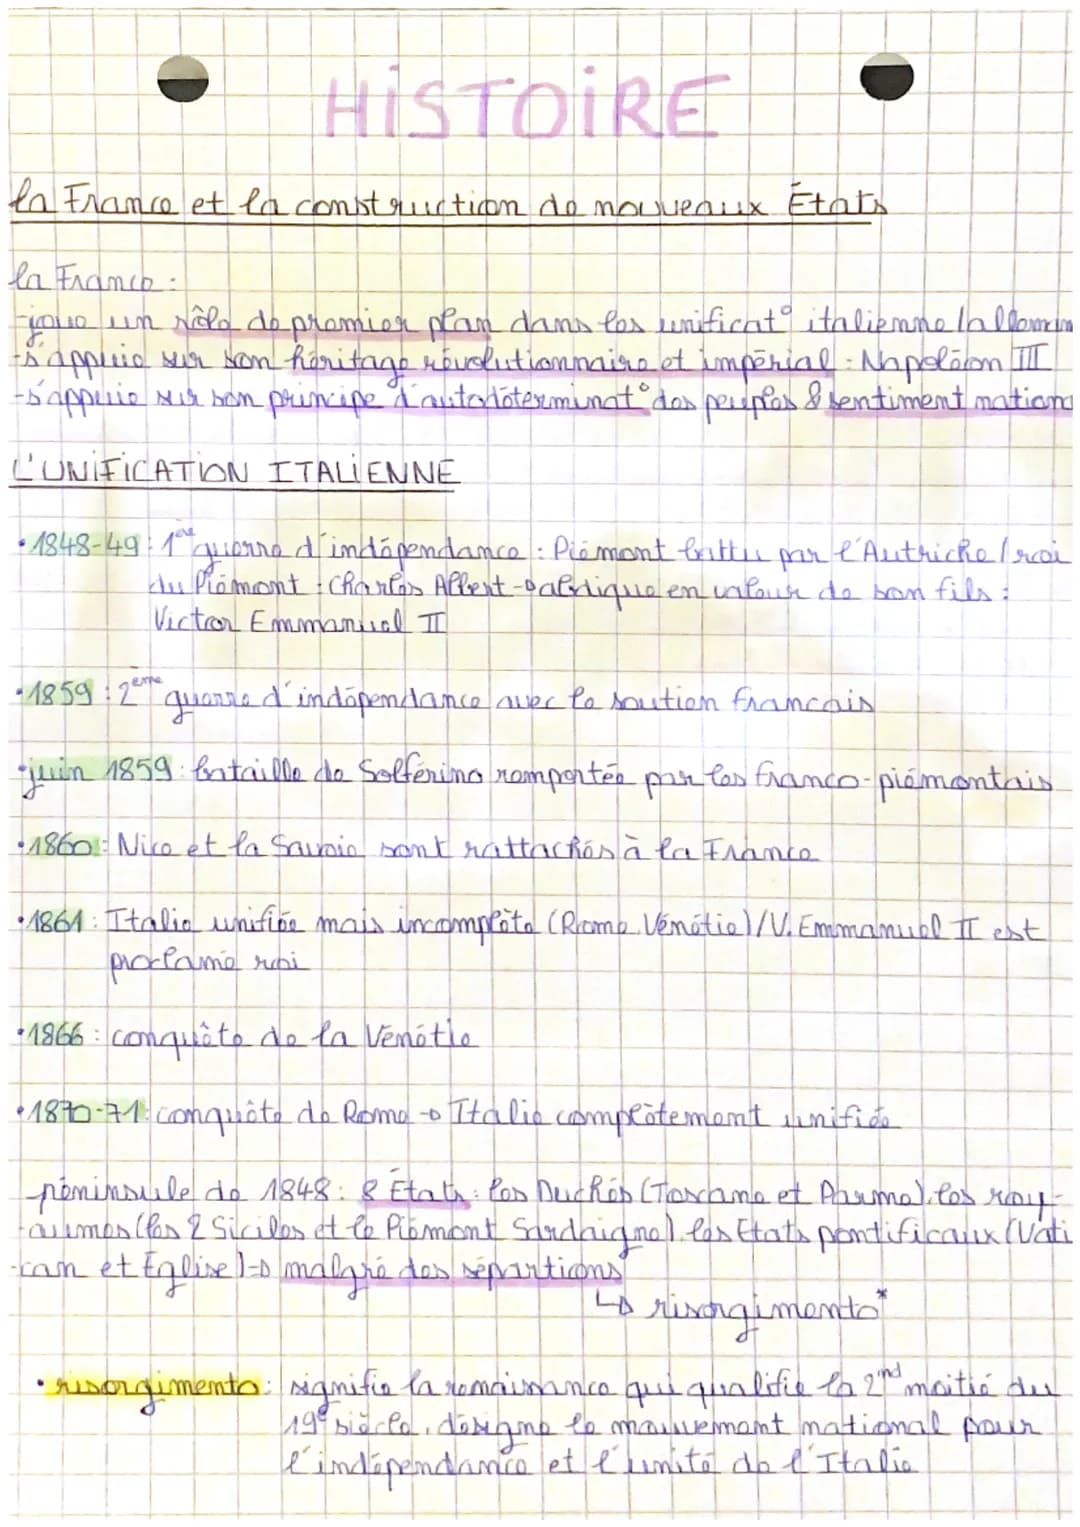 HISTOIRE
la France et la construction de nouveaux États
la France :
-joue un rôle de premier plan dans les unificat° italienne / alleman
-s'appuie sur son héritage révolutionnaire et impérial : Napoléon III
-s'appuie sur son principe d'autodéterminat° des peuples & sentiment nationa
L'UNIFICATION ITALIENNE
• 1848-49 : 1ère guerre d'indépendance : Piémont battu par l'Autriche / roi
du Piémont : Charles Albert → abdique en valeur de son fils :
Victor Emmanuel II
• 1859 : 2ème guerre d'indépendance avec le soutien francais
• juin 1859 : bataille de Solférino remportée par les franco-piémontais
• 1860 : Nice et la Savoie sont rattachés à la France
• 1861 : Italie unifiée mais incomplète (Rome, Vénétie) / V. Emmanuel II est
proclamé roi
• 1866 : conquête de la Vénétie
• 1870-71 : conquête de Rome → Italie complètement unifiée
péninsule de 1848 : 8 États : les Duchés (Toscane et Parme), les roy-
-aumes (les 2 Siciles et le Piémont Sardaigne), les Etats pontificaux (Vati
-can et Eglise) => malgré des répartions
↳ risorgimento*
• risorgimento : signifie la renaissance qui qualifie la 2nd moitié du
19e siècle, désigne le mouvement national pour
l'indépendance et l'unité de l'Italie